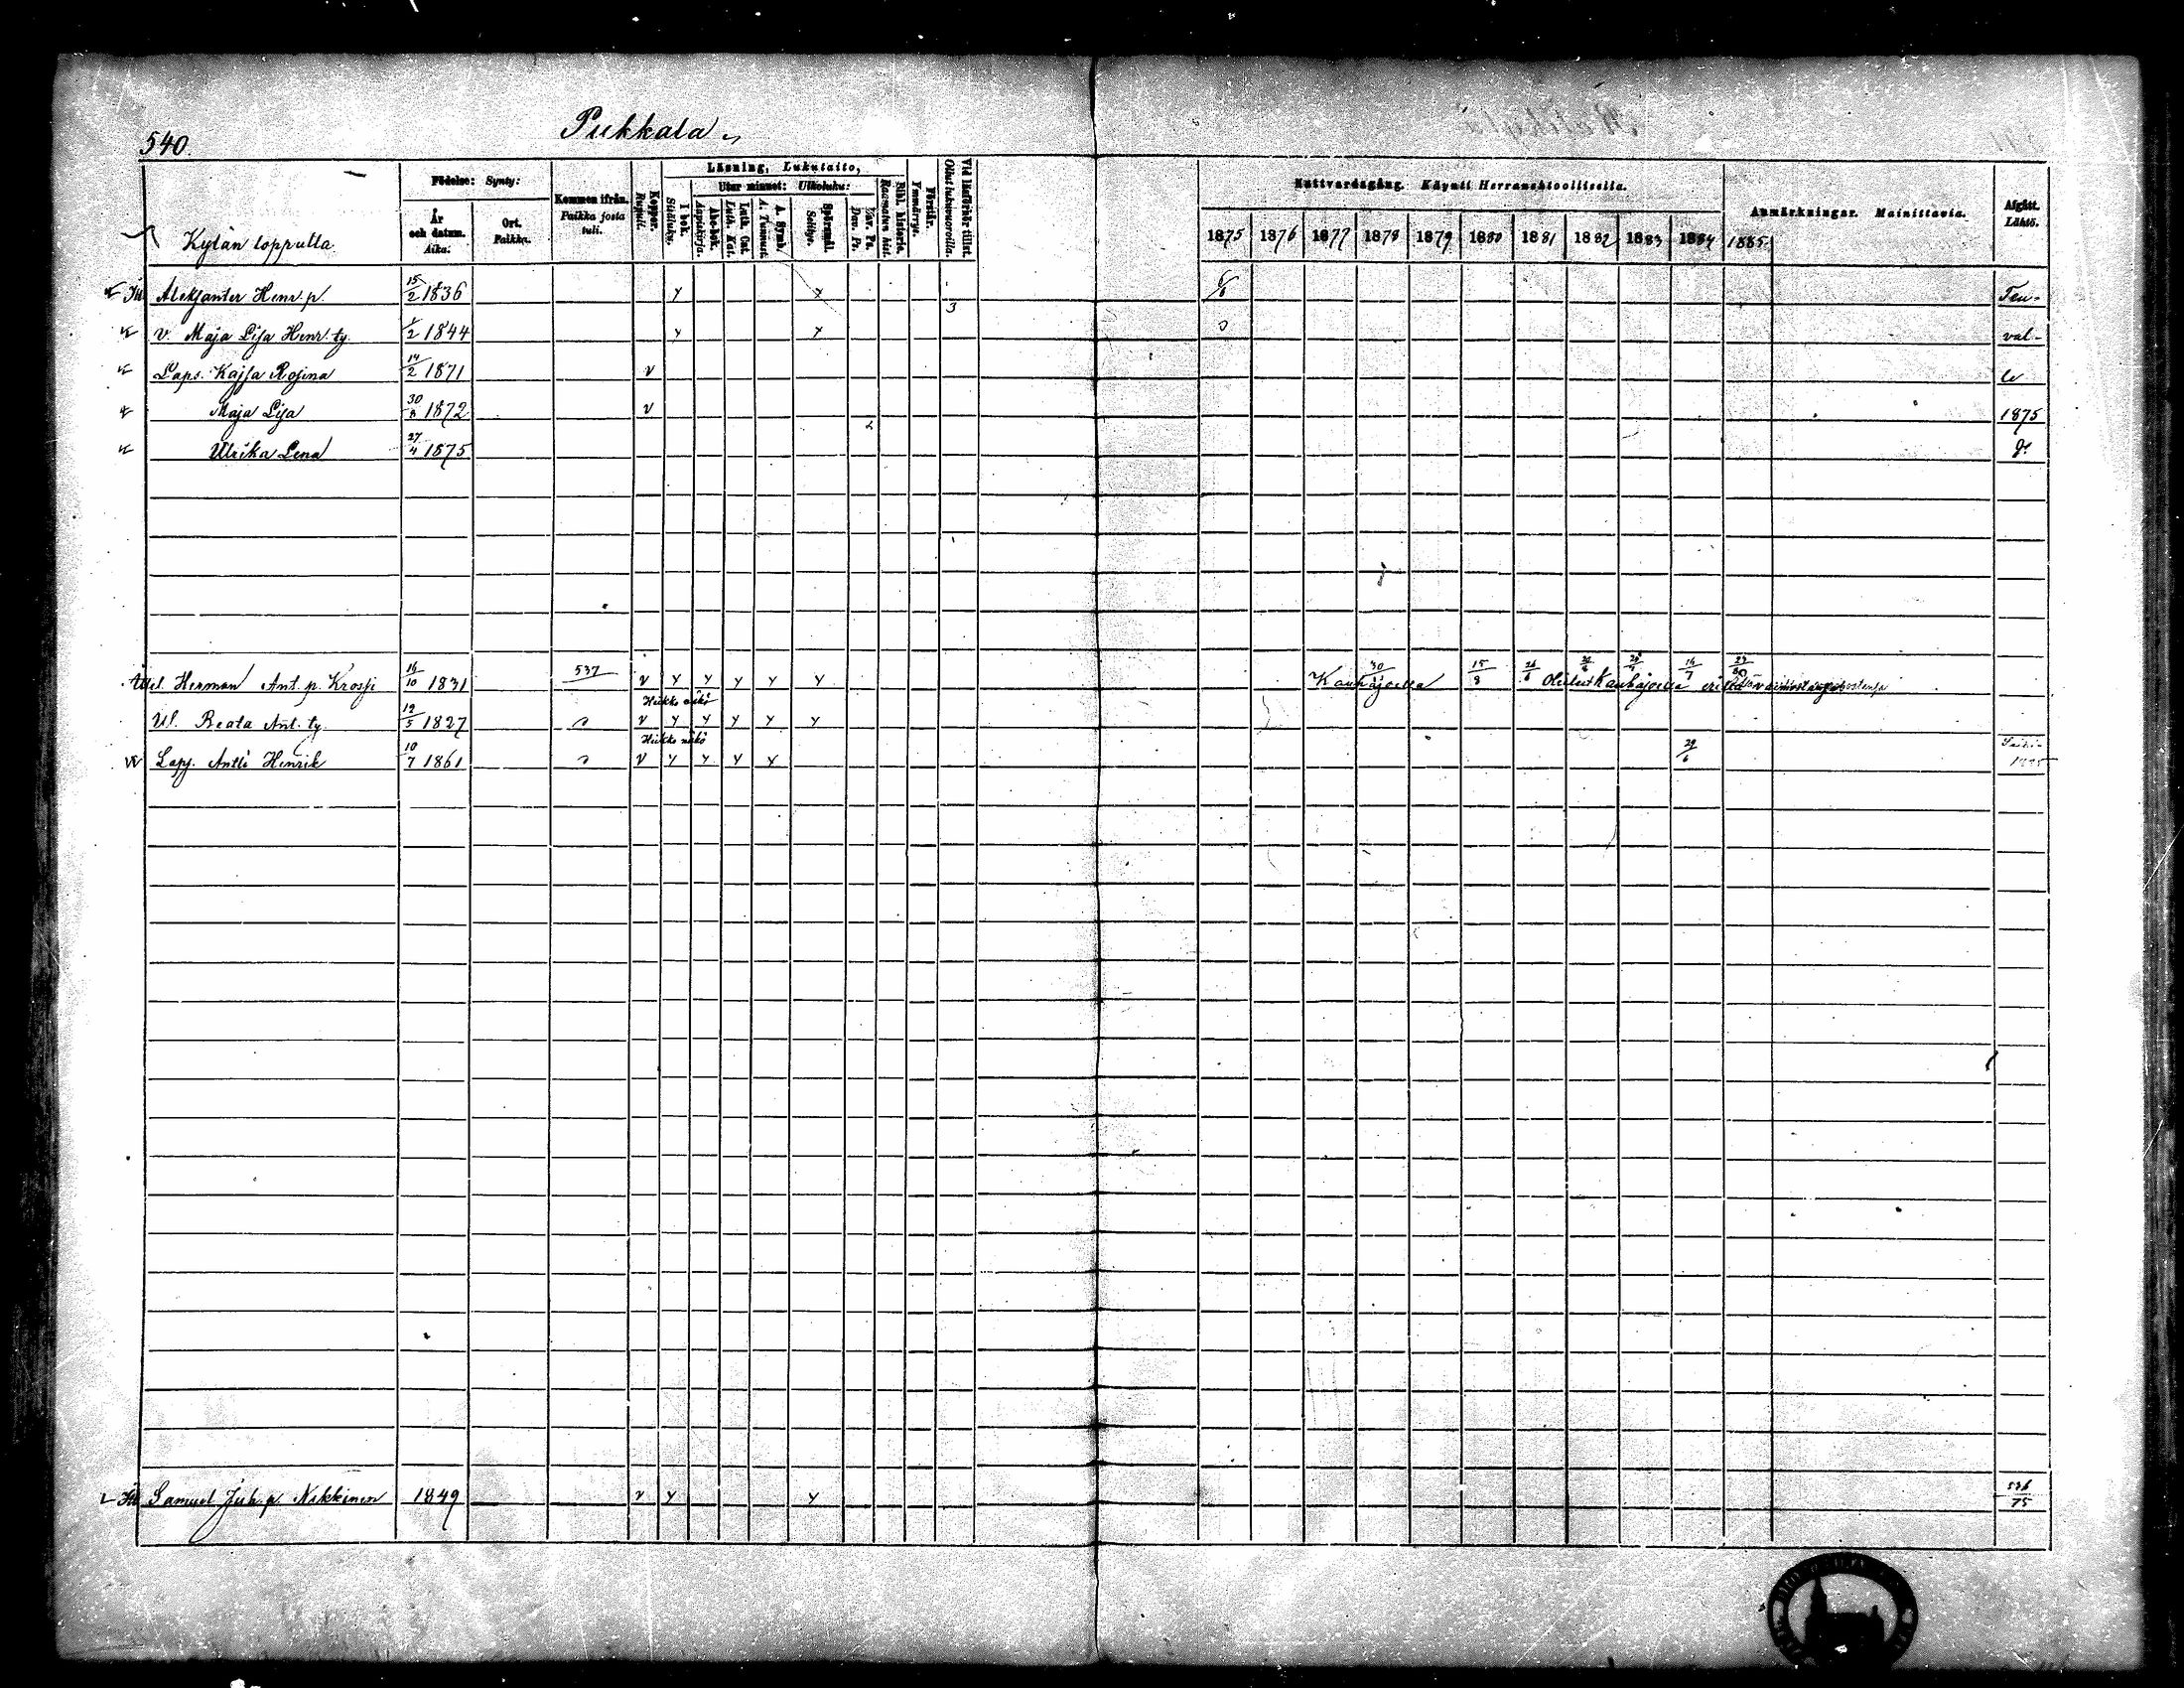 540.
Pukkala
Födelse: Synty:
År och datum. Aika:
Ort. Paikka.
Kommen ifrån. Paikka josta tuli.
Koppor. Rupuli.
Läsning, Lukutaito,
I bok. Sisäluku.
Utur minnet: Ulkoluku:
Abc-bok. Aapiskirja.
Luth. Cat. Luth. Kat.
A. Symb. A. Tunnust.
Spörsmål. Selitys.
Dav. Ps. Dav. Ps.
Bibl. historia. Raamatun hist.
Förstår. Ymmärrys.
Vid läsförhör tillst. Ollut lukuvuoroilla.
Nattvardsgång. Käynti Herranehtoollisella.
1875 1876 1877 1878 1879 1880 1881 1882 1883 1884 1885
Anmärkningar. Mainittavia.
Afgått. Lähtö.
Kylän loppulla.
Aleksanter Henr. p. 15/2 1836 y y 3 Teu-
v. Maja Lisa Henr. ty. 1/2 1844 y y val-
Laps. Kajsa Rosina 14/2 1871 v le
Maja Lisa 30/8 1872 v 1875
Ulrika Lena 27/4 1875
Herman Ant. p. Krossi 16/10 1831 537 v y y y y y Kauhajoella 30 15/8 26/6 Ollut Kauhajoella
Heikko näkö
Beata Ant. ty. 12/5 1827 v y y y y y
Heikko näkö
Laps. Antti Henrik 10/7 1861 v y y y x 29/6
Samuel Juh. p. Nikkinen 1849 v y y 536/75